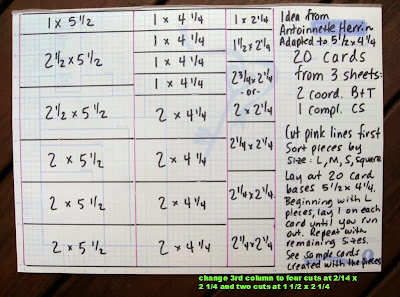 1 x 5 1/2
2 1/2 x 5 1/2
2 1/2 x 5 1/2
2 x 5 1/2
2 x 5 1/2
2 x 5 1/2
1 x 4 1/4
1 x 4 1/4
1 x 4 1/4
1 x 4 1/4
2 x 4 1/4
2 x 4 1/4
2 x 4 1/4
2 x 4 1/4
1 x 2 1/4
1 1/2 x 2 1/4
2 3/4 x 2 1/4
-or-
2 x 2 1/4
2 1/4 x 2 1/4
2 1/4 x 2 1/4
2 1/4 x 2 1/4
Idea from
Antoinnette Herrin
Adapted to 5 1/2 x 4 1/4
20 cards
from 3 sheets:
2 coord. B+T
1 compl. CS
Cut pink lines first
Sort pieces by
size: L, M, S, Square
Lay out 20 card
bases 5 1/2 x 4 1/4.
Beginning with L
pieces, lay 1 on each
card until you run
out. Repeat with
remaining sizes.
See sample cards
created with the pieces
change 3rd column to four cuts at 2/14 x
2 1/4 and two cuts at 1 1/2 x 2 1/4